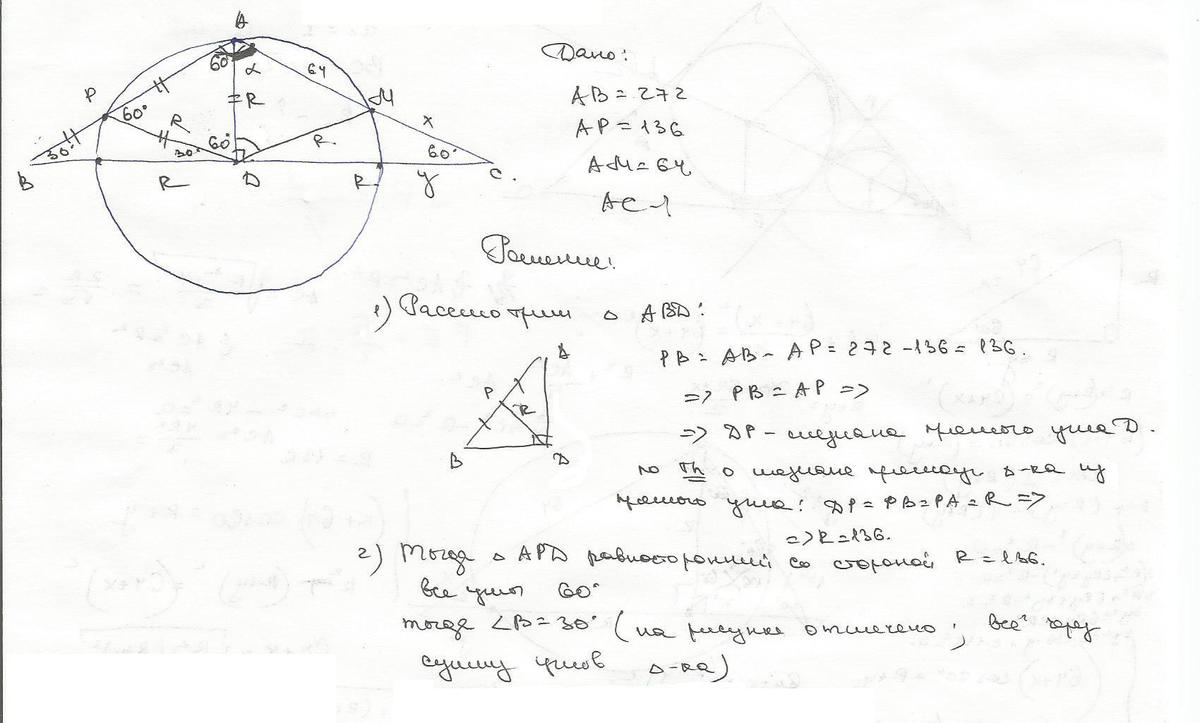 A
60° α 64
P = R M
60° R 60° R x
30° 30° 60°
B R D R y C.
Дано:
AB = 272
AP = 136
AM = 64
AC - ?
Решение:
1) Рассмотрим △ ABD:
A
P R
B D
PB = AB - AP = 272 - 136 = 136.
=> PB = AP =>
=> DP - медиана прямого угла D.
по Th о медиане прямоуг △-ка из
прямого угла: DP = PB = PA = R =>
=> R = 136.
2) Тогда △ APD равносторонний со стороной R = 136.
все углы 60°
тогда ∠B = 30° (на рисунке отмечено; всё через
сумму углов △-ка)